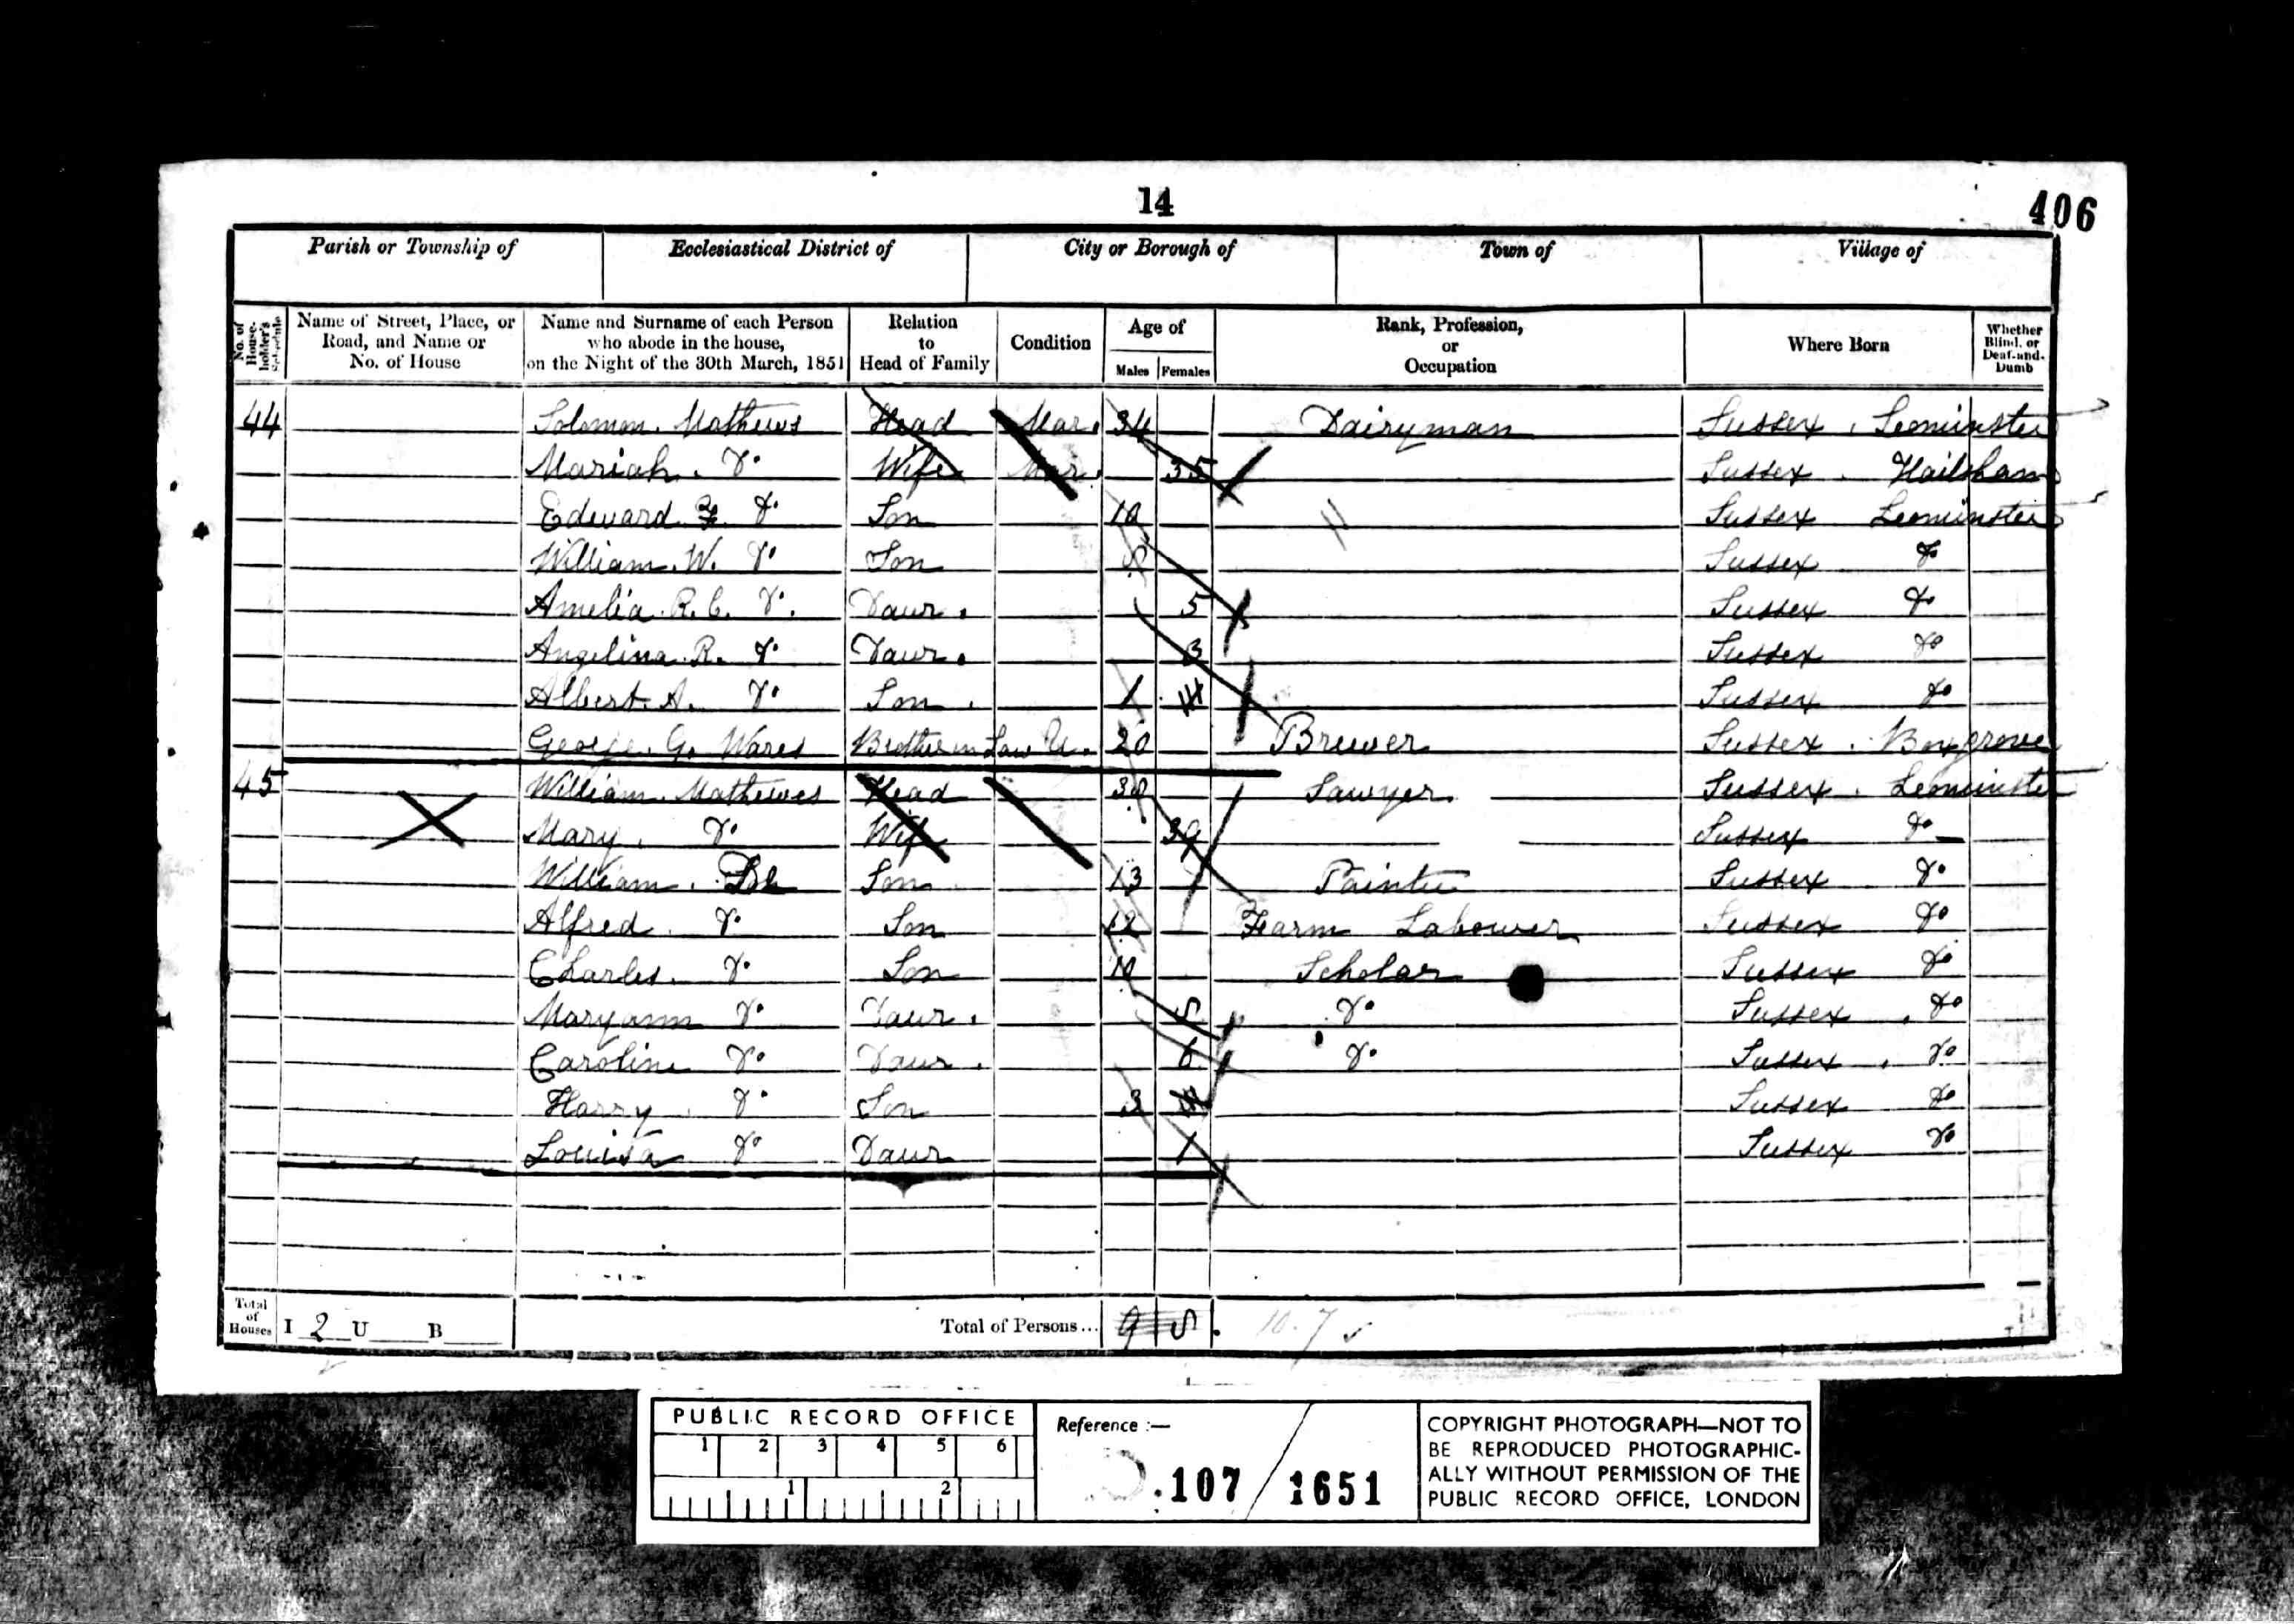 14
406
Parish or Township of Ecclesiastical District of City or Borough of Town of Village of
No. of House-holder's Schedule
Name of Street, Place, or Road, and Name or No. of House
Name and Surname of each Person who abode in the house, on the Night of the 30th March, 1851
Relation to Head of Family
Condition
Age of
Males Females
Rank, Profession, or Occupation
Where Born
Whether Blind, or Deaf-and-Dumb
44 Solomon Mathews Head Mar. 34 Dairyman Sussex Leominster
Mariah Do Wife Mar. 35 Sussex Hailsham
Edward F. Do Son 10 Sussex Leominster
William W. Do Son 8 Sussex Do
Amelia R. C. Do Daur. 5 Sussex Do
Angelina R. Do Daur. 3 Sussex Do
Albert A. Do Son 1 Sussex Do
George G. Wares Brother in Law U. 20 Brewer Sussex Boxgrove
45 William Mathews Head 38 Sawyer Sussex Leominster
Mary Do Wife 39 Sussex Do
William Do Son 13 Painter Sussex Do
Alfred Do Son 12 Farm Labourer Sussex Do
Charles Do Son 10 Scholar Sussex Do
Maryann Do Daur. 8 Do Sussex Do
Caroline Do Daur. 6 Do Sussex Do
Harry Do Son 3 Sussex Do
Louisa Do Daur 1 Sussex Do
Total of Houses I 2 U B Total of Persons... 9 8 10. 7
PUBLIC RECORD OFFICE
1 2 3 4 5 6
1 2
Reference :—
107 / 1651
COPYRIGHT PHOTOGRAPH—NOT TO
BE REPRODUCED PHOTOGRAPHIC-
ALLY WITHOUT PERMISSION OF THE
PUBLIC RECORD OFFICE, LONDON